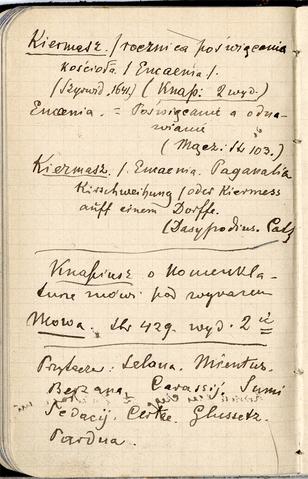 Kiermasz. / rocznica poświęcenia
kościoła. / Encaenia /.
/ Szyrwid. 1641. / ( Knap: 2 wyd.)
Encenia. = Poświęcanie a odna-
wianie
( Mącz. 103.)
Kiermasz. /. Encaenia. Paganalia
Kirschweihung / oder Kiermess
auff einem Dorffe.
(Dasypodius. Cat
Knapiusz o nomenkla-
turze mówi pod wyrazem
Mowa. str 429. wyd. 2
Przytacza: Selana. Mientus.
Berzana. Carassij.
Pardwa.